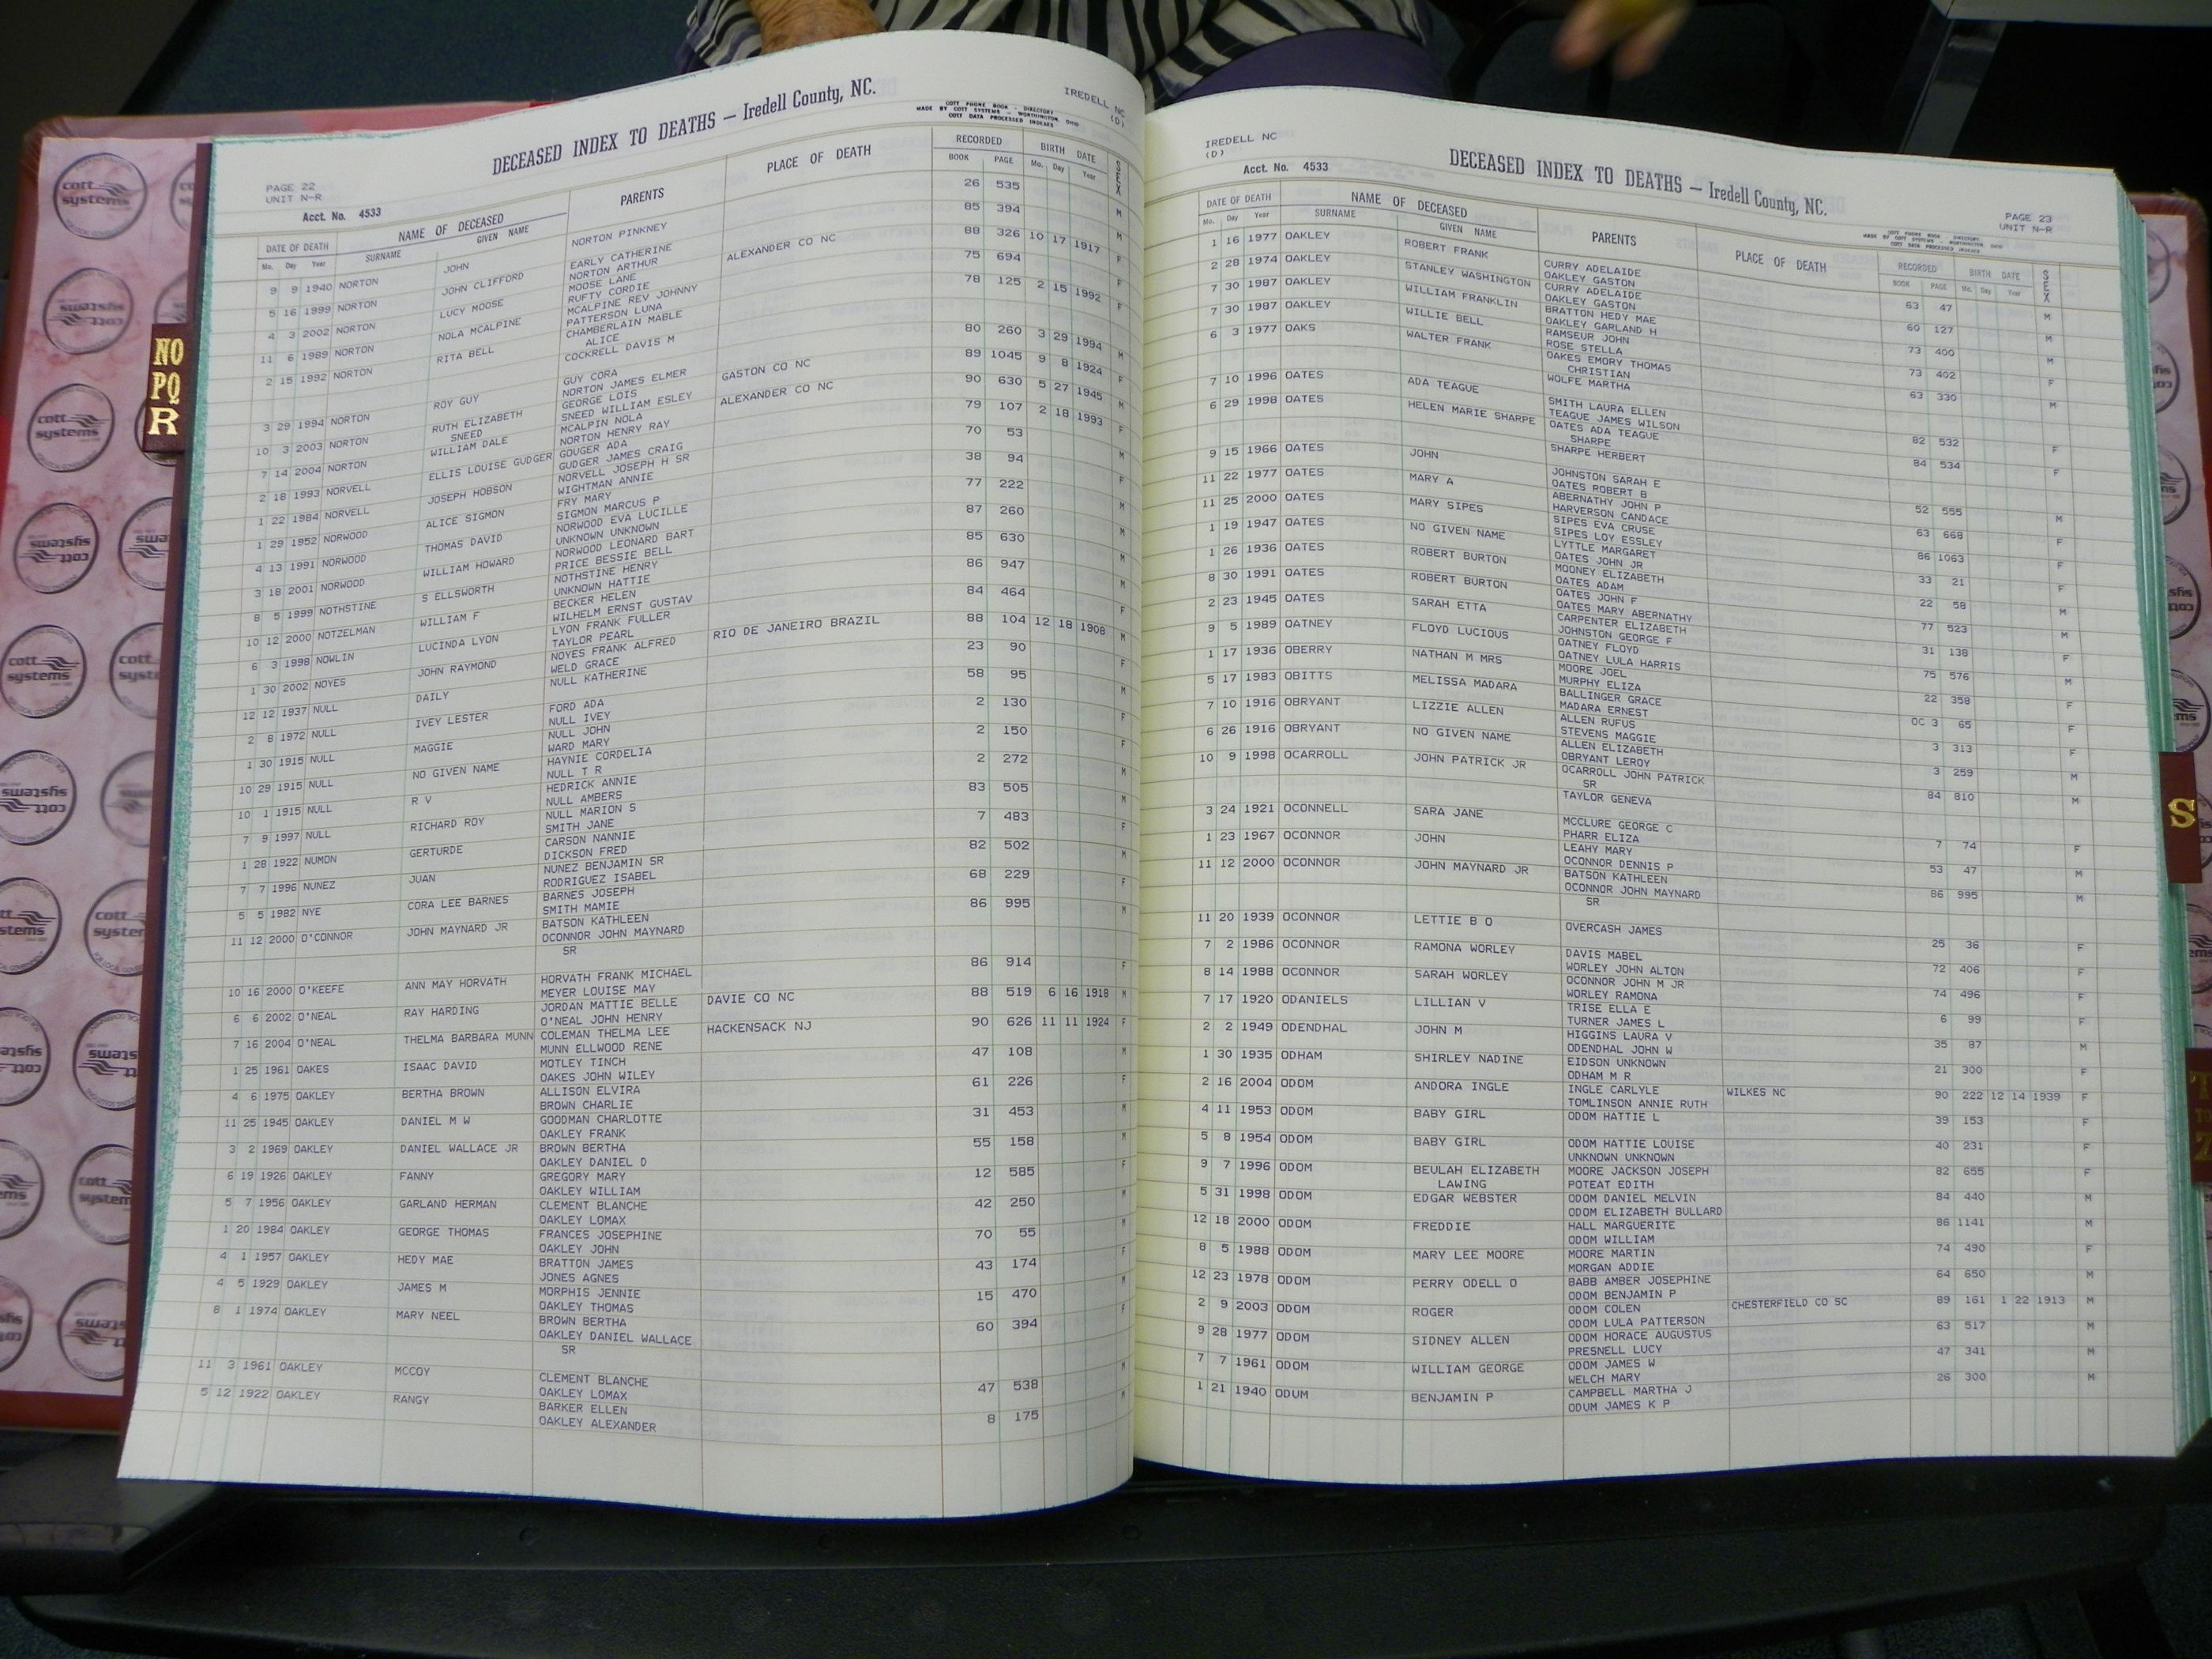 DECEASED INDEX TO DEATHS — Iredell County, NC.
COTT PHONE BOOK - DIRECTORY
MADE BY COTT SYSTEMS - WORTHINGTON, OHIO
COTT DATA PROCESSED INDEXES
IREDELL NC
(D)
PAGE 22
UNIT N-R
Acct. No. 4533
DATE OF DEATH NAME OF DECEASED PARENTS PLACE OF DEATH RECORDED BIRTH DATE SEX
Mo. Day Year SURNAME GIVEN NAME BOOK PAGE Mo. Day Year
9 9 1940 NORTON JOHN NORTON PINKNEY 26 535 M
5 16 1999 NORTON JOHN CLIFFORD EARLY CATHERINE 85 394 M
NORTON ARTHUR
4 3 2002 NORTON LUCY MOOSE MOOSE LANE ALEXANDER CO NC 88 326 10 17 1917 F
RUFTY CORDIE
11 6 1989 NORTON NOLA MCALPINE MCALPINE REV JOHNNY 75 694 F
PATTERSON LUNA
2 15 1992 NORTON RITA BELL CHAMBERLAIN MABLE 78 125 2 15 1992
ALICE
COCKRELL DAVIS M
3 29 1994 NORTON ROY GUY GUY CORA 80 260 3 29 1994 M
NORTON JAMES ELMER
10 3 2003 NORTON RUTH ELIZABETH GEORGE LOIS GASTON CO NC 89 1045 9 8 1924 F
SNEED SNEED WILLIAM ESLEY
7 14 2004 NORTON WILLIAM DALE MCALPIN NOLA ALEXANDER CO NC 90 630 5 27 1945 M
NORTON HENRY RAY
2 18 1993 NORVELL ELLIS LOUISE GUDGER GOUGER ADA 79 107 2 18 1993 F
GUDGER JAMES CRAIG
1 22 1984 NORVELL JOSEPH HOBSON NORVELL JOSEPH H SR 70 53
WIGHTMAN ANNIE
1 29 1952 NORWOOD ALICE SIGMON FRY MARY 38 94 F
SIGMON MARCUS P
4 13 1991 NORWOOD THOMAS DAVID NORWOOD EVA LUCILLE 77 222 M
UNKNOWN UNKNOWN
3 18 2001 NORWOOD WILLIAM HOWARD NORWOOD LEONARD BART 87 260 M
PRICE BESSIE BELL
8 5 1999 NOTHSTINE S ELLSWORTH NOTHSTINE HENRY 85 630 M
UNKNOWN HATTIE
10 12 2000 NOTZELMAN WILLIAM F BECKER HELEN 86 947 M
WILHELM ERNST GUSTAV
6 3 1998 NOWLIN LUCINDA LYON LYON FRANK FULLER 84 464 F
TAYLOR PEARL
1 30 2002 NOYES JOHN RAYMOND NOYES FRANK ALFRED RIO DE JANEIRO BRAZIL 88 104 12 18 1908 M
WELD GRACE
12 12 1937 NULL DAILY NULL KATHERINE 23 90 F
2 8 1972 NULL IVEY LESTER FORD ADA 58 95 M
NULL IVEY
1 30 1915 NULL MAGGIE NULL JOHN 2 130 F
WARD MARY
10 29 1915 NULL NO GIVEN NAME HAYNIE CORDELIA 2 150 F
NULL T R
10 1 1915 NULL R V HEDRICK ANNIE 2 272 M
NULL AMBERS
7 9 1997 NULL RICHARD ROY NULL MARION S 83 505 M
SMITH JANE
1 28 1922 NUMON GERTURDE CARSON NANNIE 7 483 F
DICKSON FRED
7 7 1996 NUNEZ JUAN NUNEZ BENJAMIN SR 82 502 M
RODRIGUEZ ISABEL
5 5 1982 NYE CORA LEE BARNES BARNES JOSEPH 68 229 F
SMITH MAMIE
11 12 2000 O'CONNOR JOHN MAYNARD JR BATSON KATHLEEN 86 995 M
OCONNOR JOHN MAYNARD
SR
10 16 2000 O'KEEFE ANN MAY HORVATH HORVATH FRANK MICHAEL 86 914 F
MEYER LOUISE MAY
6 6 2002 O'NEAL RAY HARDING JORDAN MATTIE BELLE DAVIE CO NC 88 519 6 16 1918 M
O'NEAL JOHN HENRY
7 16 2004 O'NEAL THELMA BARBARA MUNN COLEMAN THELMA LEE HACKENSACK NJ 90 626 11 11 1924 F
MUNN ELLWOOD RENE
1 25 1961 OAKES ISAAC DAVID MOTLEY TINCH 47 108 M
OAKES JOHN WILEY
4 6 1975 OAKLEY BERTHA BROWN ALLISON ELVIRA 61 226 F
BROWN CHARLIE
11 25 1945 OAKLEY DANIEL M W GOODMAN CHARLOTTE 31 453 M
OAKLEY FRANK
3 2 1969 OAKLEY DANIEL WALLACE JR BROWN BERTHA 55 158 M
OAKLEY DANIEL D
6 19 1926 OAKLEY FANNY GREGORY MARY 12 585 F
OAKLEY WILLIAM
5 7 1956 OAKLEY GARLAND HERMAN CLEMENT BLANCHE 42 250 M
OAKLEY LOMAX
1 20 1984 OAKLEY GEORGE THOMAS FRANCES JOSEPHINE 70 55 M
OAKLEY JOHN
4 1 1957 OAKLEY HEDY MAE BRATTON JAMES 43 174 F
JONES AGNES
4 5 1929 OAKLEY JAMES M MORPHIS JENNIE 15 470 M
OAKLEY THOMAS
8 1 1974 OAKLEY MARY NEEL BROWN BERTHA 60 394 F
OAKLEY DANIEL WALLACE
SR
11 3 1961 OAKLEY MCCOY CLEMENT BLANCHE 47 538 M
OAKLEY LOMAX
5 12 1922 OAKLEY RANGY BARKER ELLEN 8 175 M
OAKLEY ALEXANDER
IREDELL NC
(D)
Acct. No. 4533
DECEASED INDEX TO DEATHS — Iredell County, NC.
PAGE 23
UNIT N-R
DATE OF DEATH NAME OF DECEASED PARENTS PLACE OF DEATH RECORDED BIRTH DATE SEX
Mo. Day Year SURNAME GIVEN NAME BOOK PAGE Mo. Day Year
1 16 1977 OAKLEY ROBERT FRANK CURRY ADELAIDE 63 47 M
OAKLEY GASTON
2 28 1974 OAKLEY STANLEY WASHINGTON CURRY ADELAIDE 60 127 M
OAKLEY GASTON
7 30 1987 OAKLEY WILLIAM FRANKLIN BRATTON HEDY MAE 73 400 M
OAKLEY GARLAND H
7 30 1987 OAKLEY WILLIE BELL RAMSEUR JOHN 73 402 F
ROSE STELLA
6 3 1977 OAKS WALTER FRANK OAKES EMORY THOMAS 63 330 M
CHRISTIAN
WOLFE MARTHA
7 10 1996 OATES ADA TEAGUE SMITH LAURA ELLEN 82 532 F
TEAGUE JAMES WILSON
6 29 1998 OATES HELEN MARIE SHARPE OATES ADA TEAGUE 84 534 F
SHARPE
SHARPE HERBERT
9 15 1966 OATES JOHN JOHNSTON SARAH E 52 555 M
OATES ROBERT B
11 22 1977 OATES MARY A ABERNATHY JOHN P 63 668 F
HARVERSON CANDACE
11 25 2000 OATES MARY SIPES SIPES EVA CRUSE 86 1063 F
SIPES LOY ESSLEY
1 19 1947 OATES NO GIVEN NAME LYTTLE MARGARET 33 21 F
OATES JOHN JR
1 26 1936 OATES ROBERT BURTON MOONEY ELIZABETH 22 58 M
OATES ADAM
8 30 1991 OATES ROBERT BURTON OATES JOHN F 77 523 M
OATES MARY ABERNATHY
2 23 1945 OATES SARAH ETTA CARPENTER ELIZABETH 31 138 F
JOHNSTON GEORGE F
9 5 1989 OATNEY FLOYD LUCIOUS OATNEY FLOYD 75 576 M
OATNEY LULA HARRIS
1 17 1936 OBERRY NATHAN M MRS MOORE JOEL 22 358 F
MURPHY ELIZA
5 17 1983 OBITTS MELISSA MADARA BALLINGER GRACE OC 3 65 F
MADARA ERNEST
7 10 1916 OBRYANT LIZZIE ALLEN ALLEN RUFUS 3 313 F
STEVENS MAGGIE
6 26 1916 OBRYANT NO GIVEN NAME ALLEN ELIZABETH 3 259 M
OBRYANT LEROY
10 9 1998 OCARROLL JOHN PATRICK JR OCARROLL JOHN PATRICK 84 810 M
SR
TAYLOR GENEVA
3 24 1921 OCONNELL SARA JANE MCCLURE GEORGE C 7 74 F
PHARR ELIZA
1 23 1967 OCONNOR JOHN LEAHY MARY 53 47 M
OCONNOR DENNIS P
11 12 2000 OCONNOR JOHN MAYNARD JR BATSON KATHLEEN 86 995 M
OCONNOR JOHN MAYNARD
SR
11 20 1939 OCONNOR LETTIE B O OVERCASH JAMES 25 36 F
7 2 1986 OCONNOR RAMONA WORLEY DAVIS MABEL 72 406 F
WORLEY JOHN ALTON
8 14 1988 OCONNOR SARAH WORLEY OCONNOR JOHN M JR 74 496 F
WORLEY RAMONA
7 17 1920 ODANIELS LILLIAN V TRISE ELLA E 6 99 F
TURNER JAMES L
2 2 1949 ODENDHAL JOHN M HIGGINS LAURA V 35 87 M
ODENDHAL JOHN W
1 30 1935 ODHAM SHIRLEY NADINE EIDSON UNKNOWN 21 300 F
ODHAM M R
2 16 2004 ODOM ANDORA INGLE INGLE CARLYLE WILKES NC 90 222 12 14 1939 F
TOMLINSON ANNIE RUTH
4 11 1953 ODOM BABY GIRL ODOM HATTIE L 39 153 F
5 8 1954 ODOM BABY GIRL ODOM HATTIE LOUISE 40 231 F
UNKNOWN UNKNOWN
9 7 1996 ODOM BEULAH ELIZABETH MOORE JACKSON JOSEPH 82 655 F
LAWING POTEAT EDITH
5 31 1998 ODOM EDGAR WEBSTER ODOM DANIEL MELVIN 84 440 M
ODOM ELIZABETH BULLARD
12 18 2000 ODOM FREDDIE HALL MARGUERITE 86 1141 M
ODOM WILLIAM
8 5 1988 ODOM MARY LEE MOORE MOORE MARTIN 74 490 F
MORGAN ADDIE
12 23 1978 ODOM PERRY ODELL O BABB AMBER JOSEPHINE 64 650 M
ODOM BENJAMIN P
2 9 2003 ODOM ROGER ODOM COLEN CHESTERFIELD CO SC 89 161 1 22 1913 M
ODOM LULA PATTERSON
9 28 1977 ODOM SIDNEY ALLEN ODOM HORACE AUGUSTUS 63 517 M
PRESNELL LUCY
7 7 1961 ODOM WILLIAM GEORGE ODOM JAMES W 47 341 M
WELCH MARY
1 21 1940 ODUM BENJAMIN P CAMPBELL MARTHA J 26 300 M
ODUM JAMES K P
NO
PQ
R
S
T
Z
cott
systems